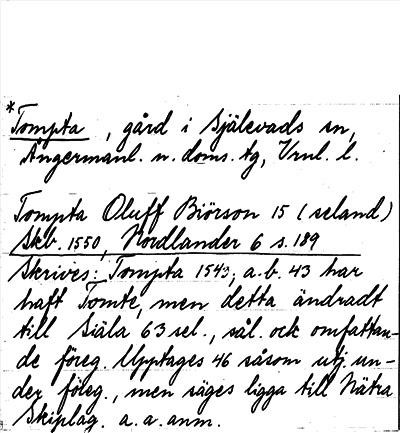 *Tompta, gård i Själevads sn,
Ångermanl. n. doms. tg, Vrnl. l.
Tompta Oluff Biörson 15 (seland)
Skb. 1550, Nordlander 6 s. 189
Skrives: Tompta 1543; a.b. 43 har
haft Tomte, men detta ändradt
till Siäla 63 sel., sål. ock omfattan-
de föreg. Upptages 46 såsom utj. un-
der föleg., men säges ligga till Nätra
Skiplag. a. a. anm.